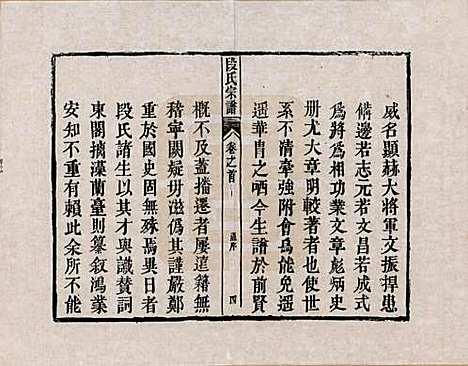 威名顯赫大將軍文振捍患
備邊若志元若文昌若成式
爲將爲相功業文章彪炳史
册尤大章明較著者也使世
系不清牽強附會爲能免遥
遥華胄之哂今生譜於前賢
段氏宗譜
卷之首
序
四
概不及蓋播遷者屢這籍無
稽寧闕疑毋濫僞其謹嚴鄭
重於國史固無殊焉異日者
段氏諸生以其才與識賛詞
東閣摛藻蘭臺則纂叙鴻業
安知不重有賴此余所不能